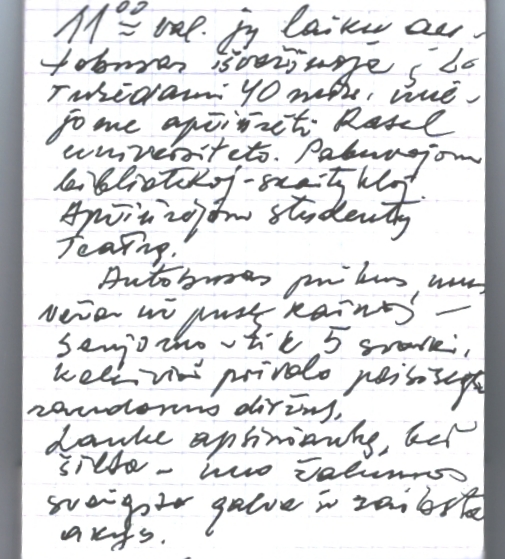 11⁰⁰ val. jų laiku au-
tobusas išvažiuoja į
Turėdami 40 min. nuė-
jome apžiūrėti Rasel
universiteto. Pabuvojom
bibliotekoj-skaitykloj
Apžiūrėjom studentų
Teatrą.
Autobusas puikus, mus
veža už pusę kainos -
senjorus - tik 5 svarai.
keleiviai privalo prisisegti
raudonus diržus.
Lauke apsiniaukę, bet
šilta - nuo žalumos
svaigsta galva ir raibsta
akys.